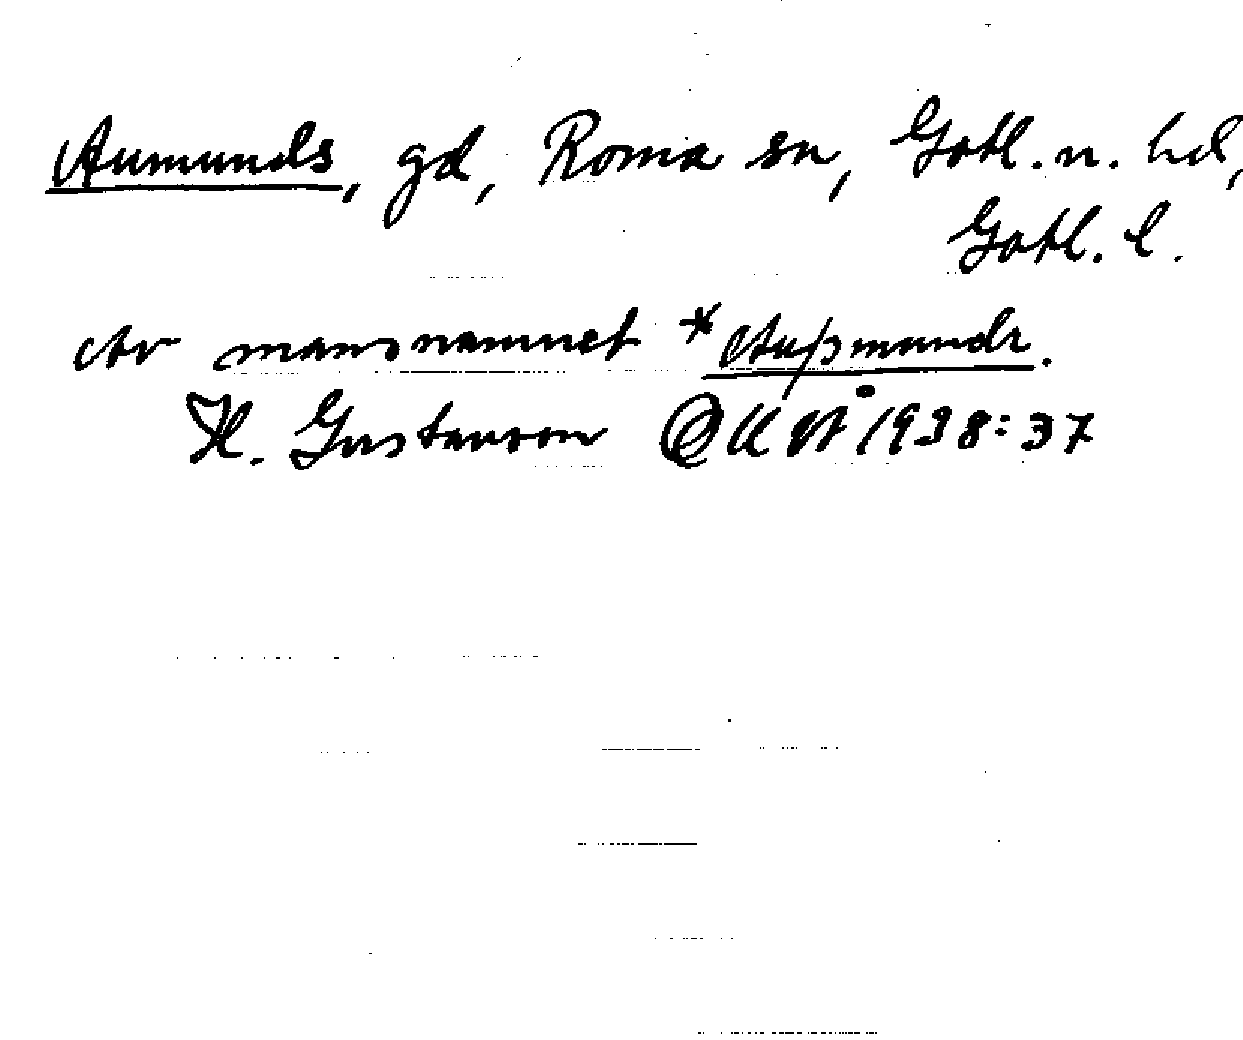 Aumunds, gd, Roma sn, Gotl. n. hd,
Gotl. l.
Av mansnamnet *Auþmundr.
H. Gustavson OUÅ 1938:37